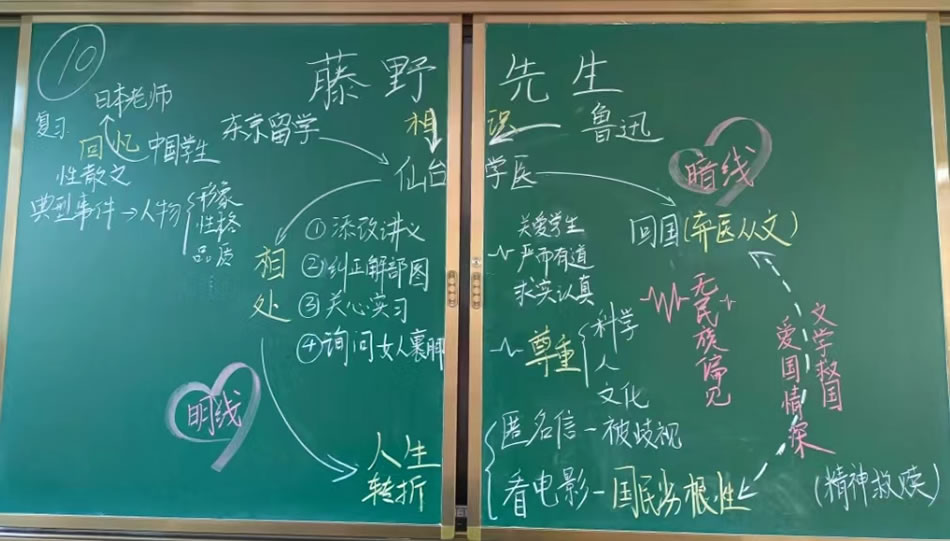 10
藤野先生
日本老师
复习
回忆
中国学生
性散文
典型事件→人物
形象
性格
品质
东京留学
相识
鲁迅
仙台学医
暗线
回国(弃医从文)
相处
①添改讲义
②纠正解部图
③关心实习
④询问女人裹脚
关爱学生
严而有道
求实认真
尊重
科学
人
文化
无民族偏见
文学救国
爱国情深
明线
人生
转折
匿名信-被歧视
看电影-国民劣根性
(精神救赎)